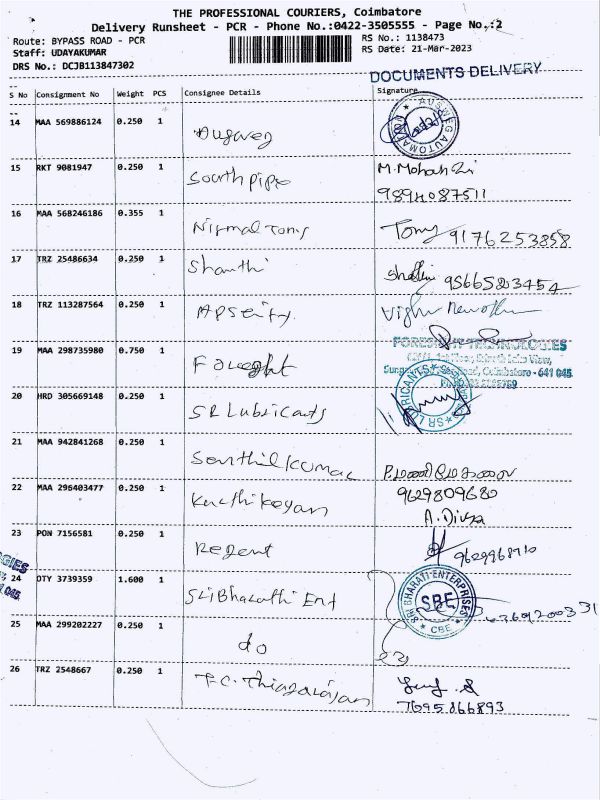 THE PROFESSIONAL COURIERS, Coimbatore
Delivery Runsheet - PCR - Phone No.:0422-3505555 - Page No.:2
Route: BYPASS ROAD - PCR
Staff: UDAYAKUMAR
DRS No.: DCJB113847302
RS No.: 1138473
RS Date: 21-Mar-2023
DOCUMENTS DELIVERY
S No Consignment No Weight PCS Consignee Details Signature
14 MAA 569886124 0.250 1
AUSWEG AUTOMATION
15 RKT 9081947 0.250 1 South pipe M. Mohan
9894087511
16 MAA 568246186 0.355 1 Nirmal Tony Tony 9176253858
17 TRZ 25486634 0.250 1 Shanthi 9566523454
18 TRZ 113287564 0.250 1
19 MAA 298735980 0.750 1
FORESIGHT TECHNOLOGIES
Coimbatore - 641 045.
20 HRD 305669148 0.250 1 SR Lubricants
SR LUBRICANTS
21 MAA 942841268 0.250 1 Senthil Kumar
22 MAA 296403477 0.250 1 Karthikeyan 9629809680
A. Divya
23 PON 7156581 0.250 1 Regent 9629968910
24 OTY 3739359 1.600 1 Sri Bharathi Ent
SRI BHARATI ENTERPRISES
SBE
CBE
25 MAA 299202227 0.250 1 do
26 TRZ 2548667 0.250 1 T.C. Thiagarajan
7695866893